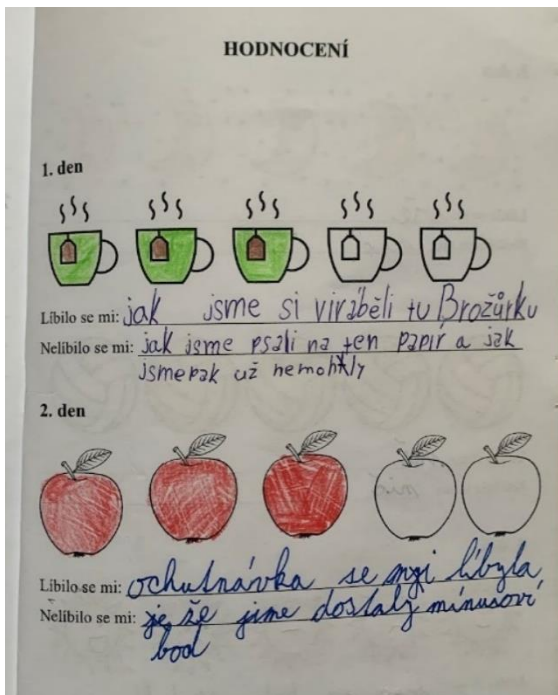 HODNOCENÍ
1. den
Líbilo se mi: jak jsme si viráběli tu Brožůrku
Nelíbilo se mi: jak jsme psali na ten papír a jak
jsme pak už nemohly
2. den
Líbilo se mi: ochutnávka se mji líbyla
Nelíbilo se mi: je že jsme dostaly mínusoví
bod